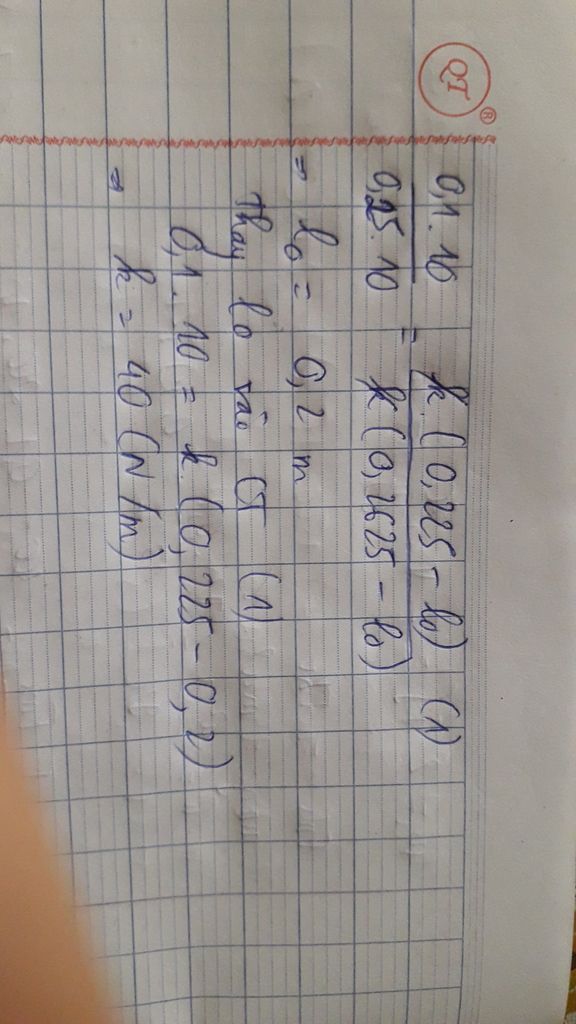 QT ®
0,1.10 = k.(0,225 - l0) (1)
0,25.10 k(0,2625 - l0)
⇒ l0 = 0,2 m
Thay l0 vào CT (1)
0,1.10 = k.(0,225 - 0,2)
⇒ k = 40 (N/m)